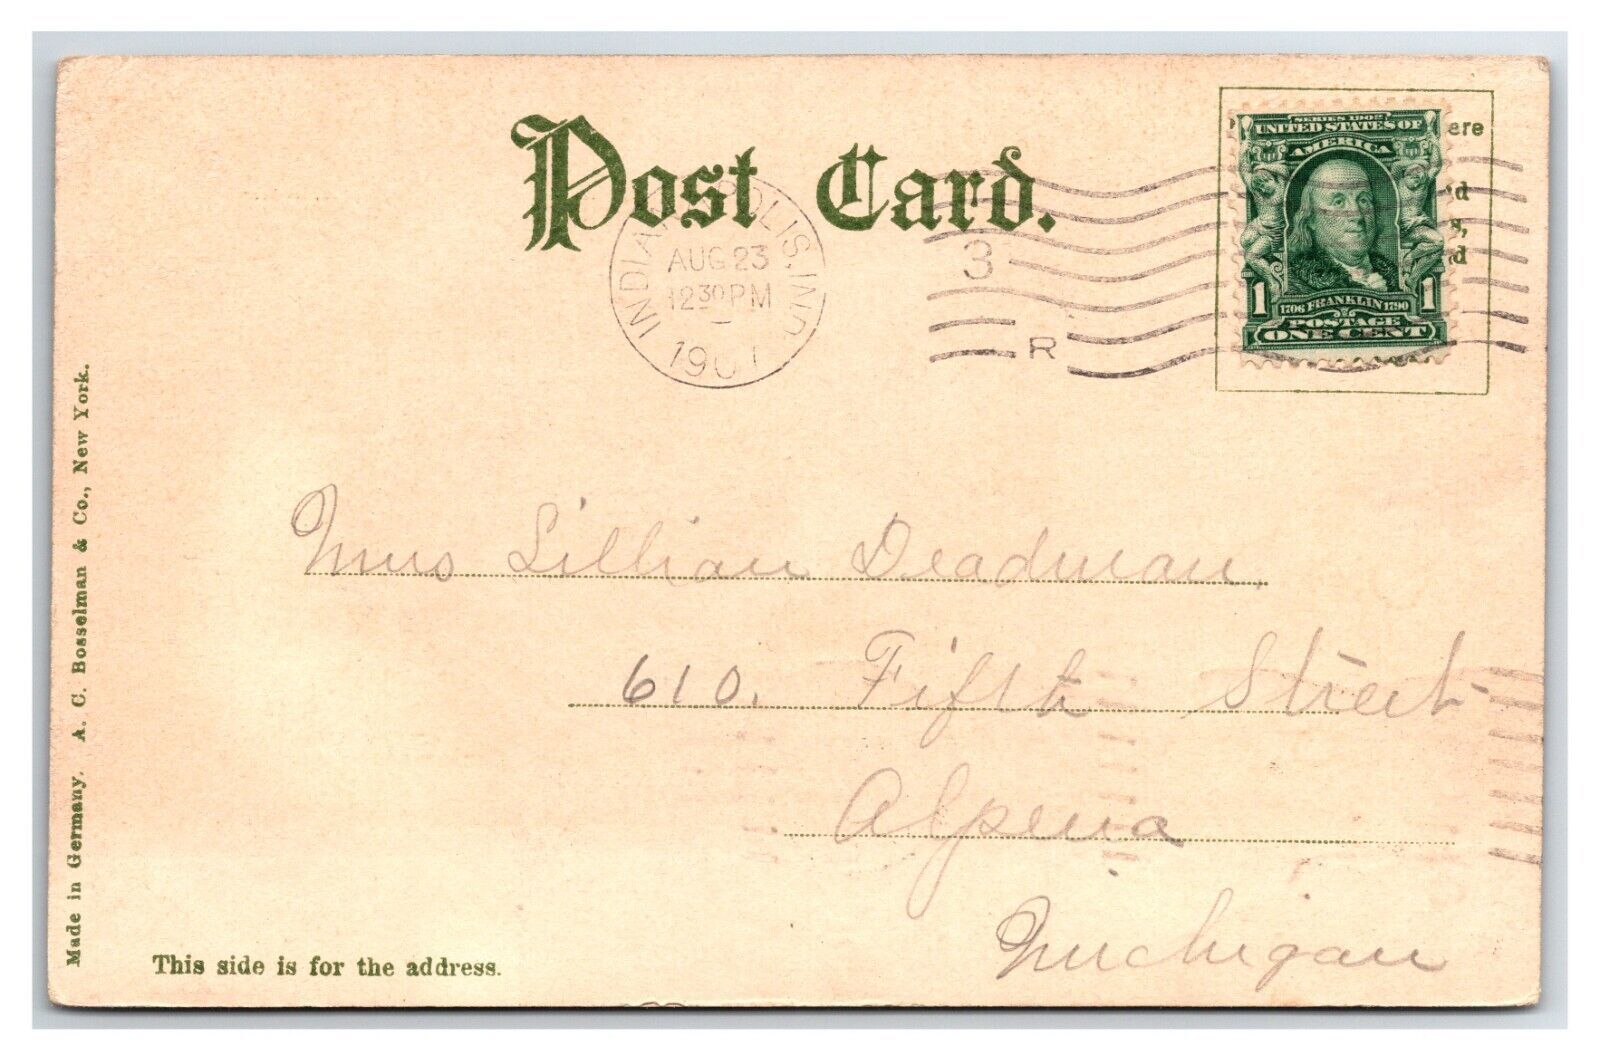 Post Card.
INDIANAPOLIS, IND.
AUG 23
12 30 PM
190
3
R
ere
SERIES 1902
UNITED STATES OF
AMERICA
1 1
1706 FRANKLIN 1790
POSTAGE
ONE CENT
Mrs Lillian Deadman,
610. Fifth Street
Alpena
Michigan
This side is for the address.
Made in Germany. A. C. Bosselman & Co., New York.